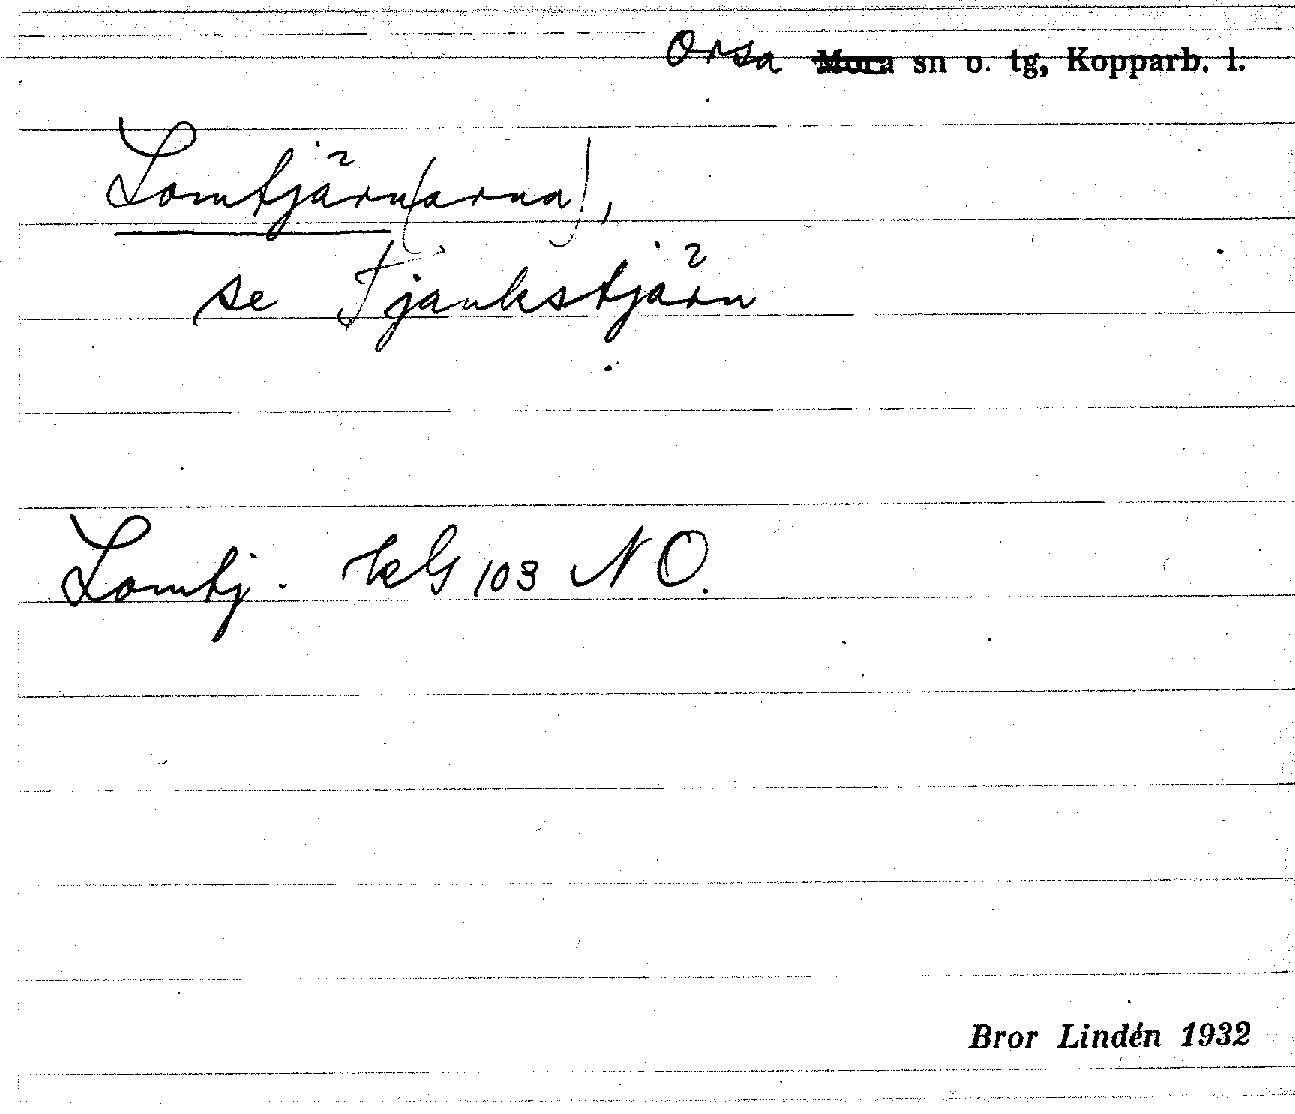 Orsa Mora sn o. tg, Kopparb. l.
Lomtjärn(arna),
se Fjankstjärn
Lomtj. 103 NO.
Bror Lindén 1932